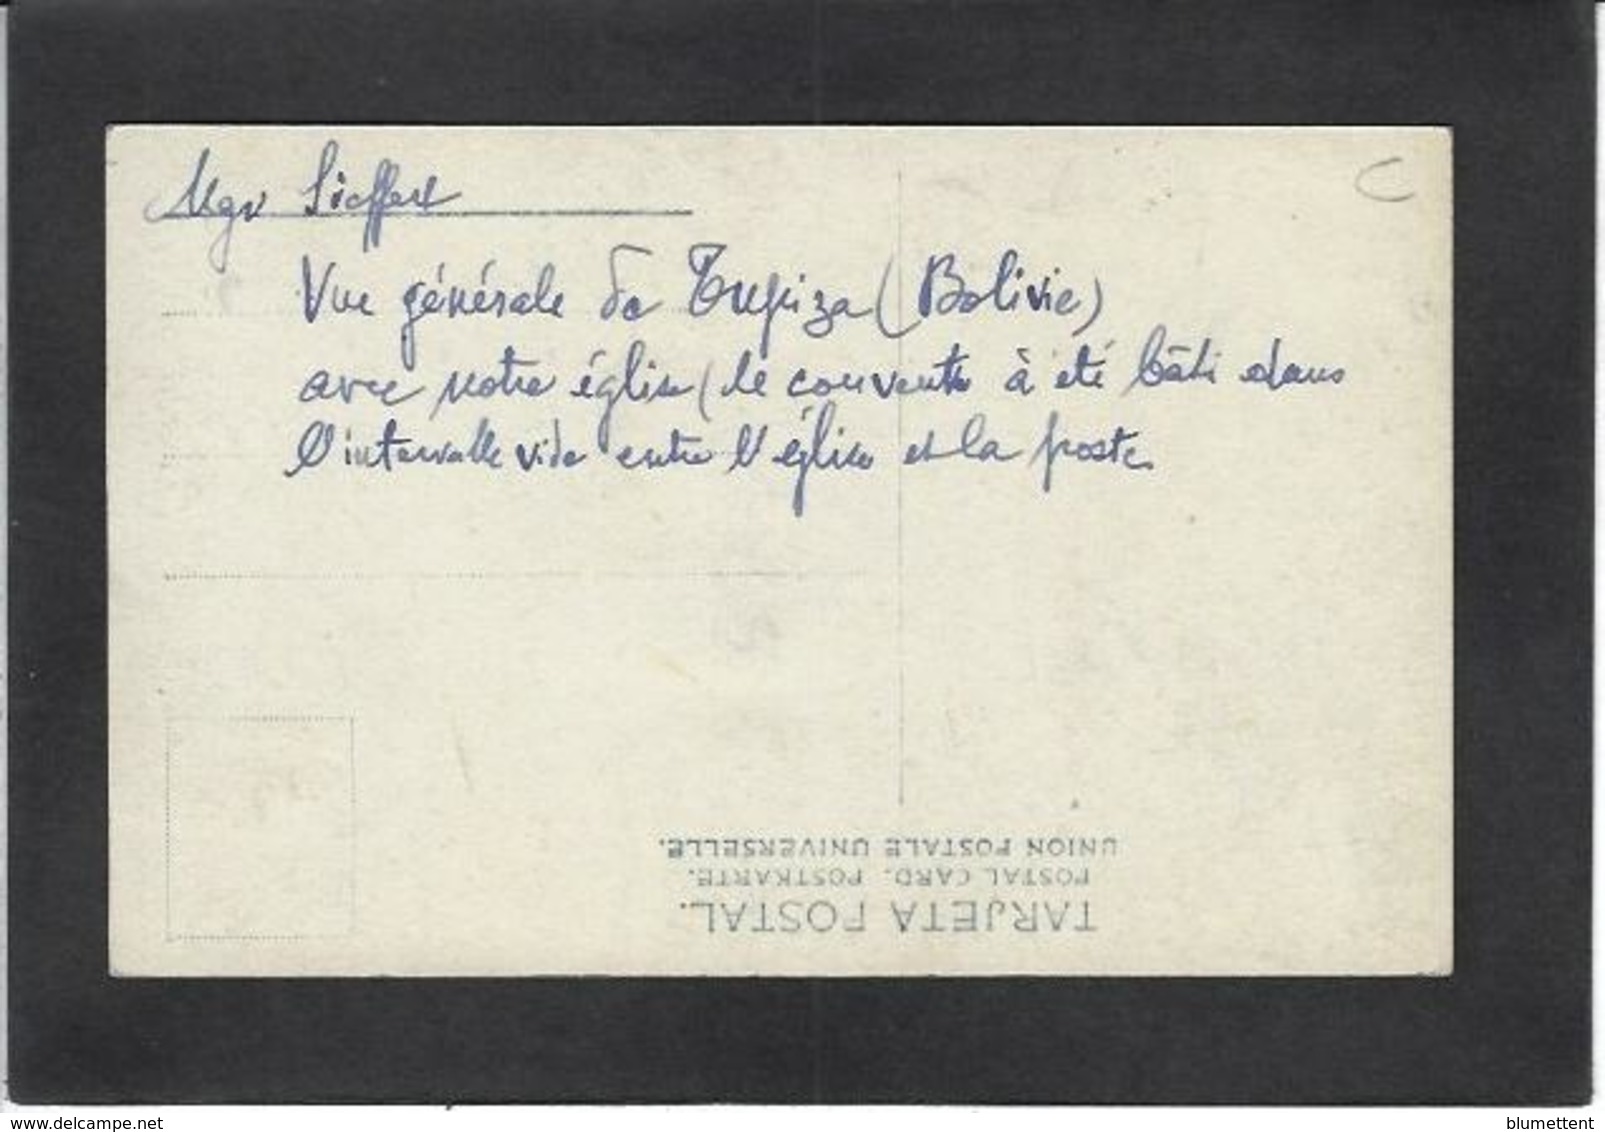 Mgr Sieffert
Vue générale de Tupiza (Bolivie)
avec notre église (le couvent à été bâti dans
l'intervalle vide entre l'église et la poste
C
UNION POSTALE UNIVERSELLE.
POSTAL CARD. POSTKARTE.
TARJETA POSTAL.
www.delcampe.net
blumettent